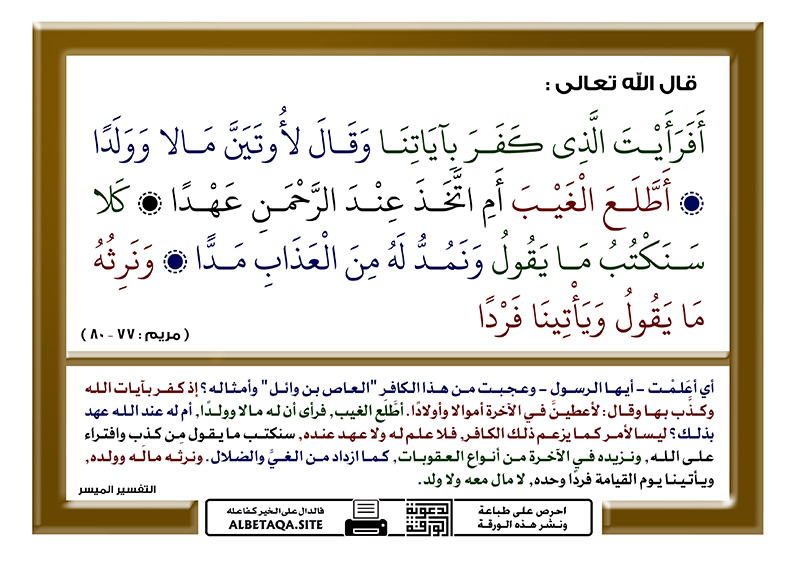 قال الله تعالى :
أَفَرَأَيْتَ الَّذِى كَفَرَ بِآيَاتِنَا وَقَالَ لأُوتَيَنَّ مَالا وَوَلَدًا
أَطَّلَعَ الْغَيْبَ أَمِ اتَّخَذَ عِنْدَ الرَّحْمَنِ عَهْدًا كَلا
سَنَكْتُبُ مَا يَقُولُ وَنَمُدُّ لَهُ مِنَ الْعَذَابِ مَدًّا وَنَرِثُهُ
مَا يَقُولُ وَيَأْتِينَا فَرْدًا
( مريم : ٧٧ - ٨٠ )
أي أعَلمْت - أيها الرسول - وعجبت من هذا الكافر "العاص بن وائل" وأمثاله؟ إذ كفر بآيات الله
وكذَّب بها وقال: لأعطينَّ في الآخرة أموالا وأولادًا. أطَّلَع الغيب, فرأى أن له مالا وولدًا, أم له عند الله عهد
بذلك؟ ليسا لأمر كما يزعم ذلك الكافر, فلا علم له ولا عهد عنده, سنكتب ما يقول مِن كذب وافتراء
على الله, ونزيده في الآخرة من أنواع العقوبات, كما ازداد من الغيِّ والضلال. ونرثه مالَه وولده,
ويأتينا يوم القيامة فردًا وحده, لا مال معه ولا ولد.
التفسير الميسر
احرص على طباعة
ونشر هذه الورقة
الورقة الدعوية
فالدال على الخير كفاعله
ALBETAQA.SITE